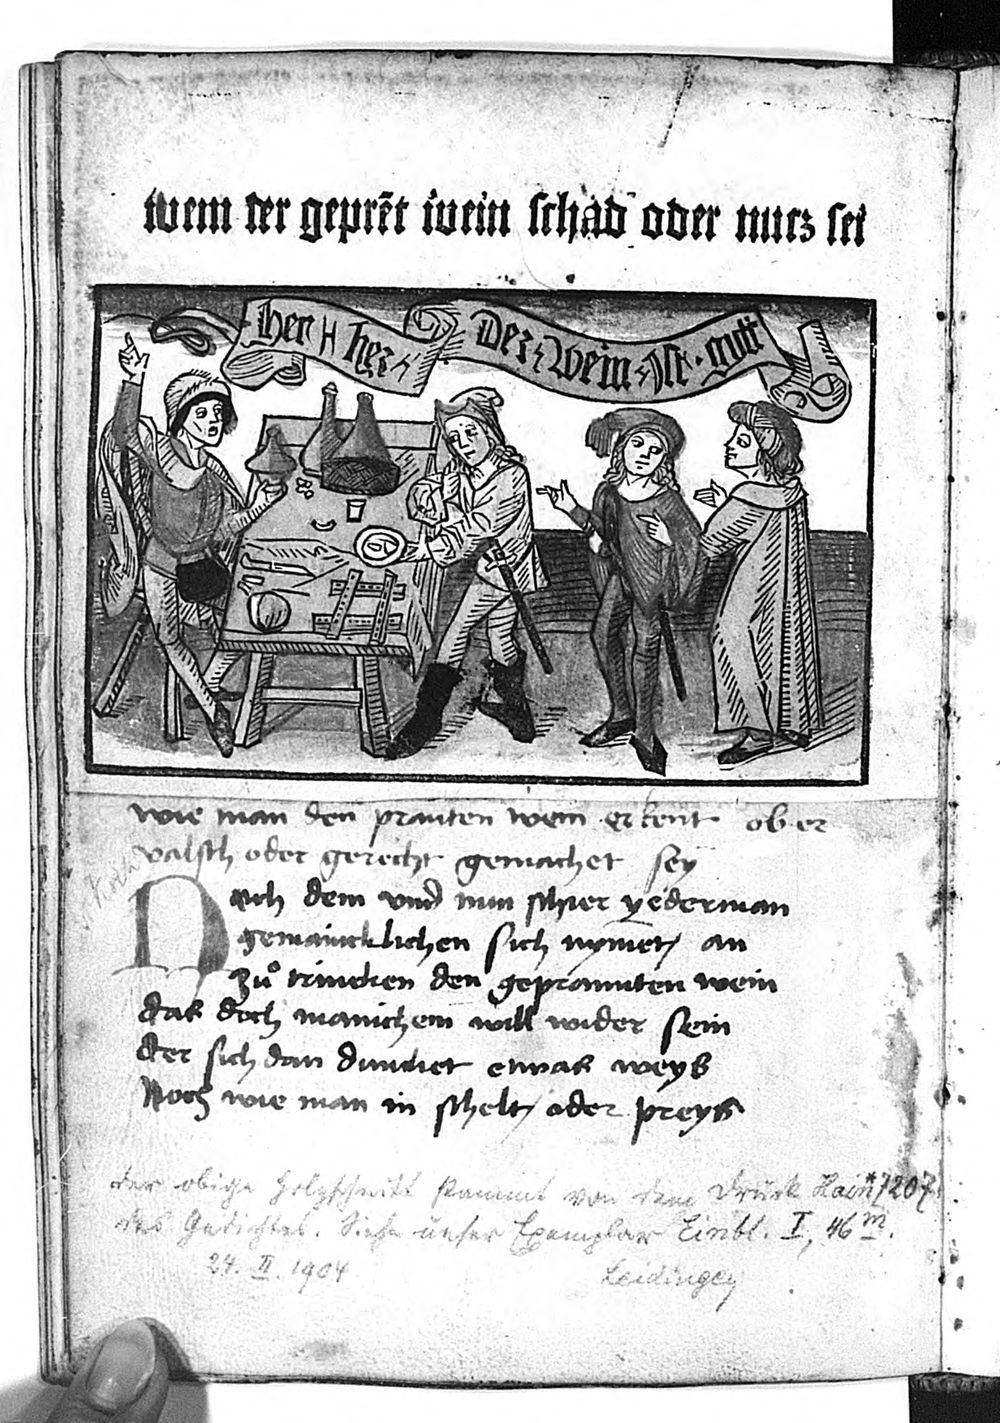 wem der geprēt wein schad oder nucz sei
her her
Der wein ist gutt
wie man den pranten wein erkent ob er
valsch oder gerecht gemachet sey
Nach dem vnd nun schier yederman
gemaincklichen sich nymet an
zů trincken den geprannten wein
das doch manichem will wider sein
der sich dan duncket etwas weys
Noch wie man in schelt oder preys
der obige Holzschnitt stammt von dem Druck Hain *7207
des Gedichtes. Siehe unser Exemplar Einbl. I, 46 m.
24. II. 1904 Leidinger